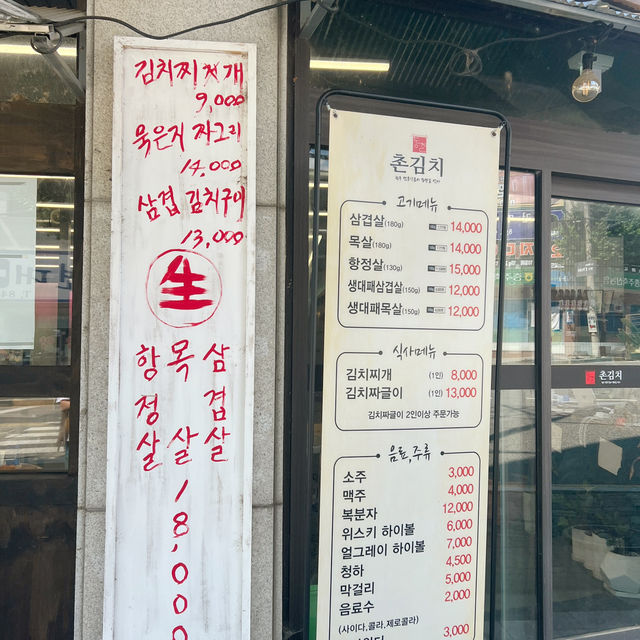 김치찌개
9,000
묵은지 짜그리
14,000
삼겹 김치구이
13,000
生
항정살
목살
삼겹살
18,000
촌김치
고기메뉴
삼겹살(180g) 14,000
목살(180g) 14,000
항정살(130g) 15,000
생대패삼겹살(150g) 12,000
생대패목살(150g) 12,000
식사메뉴
김치찌개 (1인) 8,000
김치짜글이 (1인) 13,000
김치짜글이 2인이상 주문가능
음료,주류
소주 3,000
맥주 4,000
복분자 12,000
위스키 하이볼 6,000
얼그레이 하이볼 7,000
청하 4,500
막걸리 5,000
음료수 2,000
(사이다,콜라,제로콜라)
3,000
촌김치